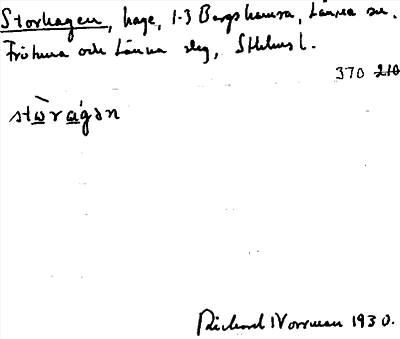 Storhagen, hage, 1-3 Bergshamra, Länna sn.
Frötuna och Länna slg, Sthlms l.
370 210
stὼrag̀ən
Richard Norrman 1930.